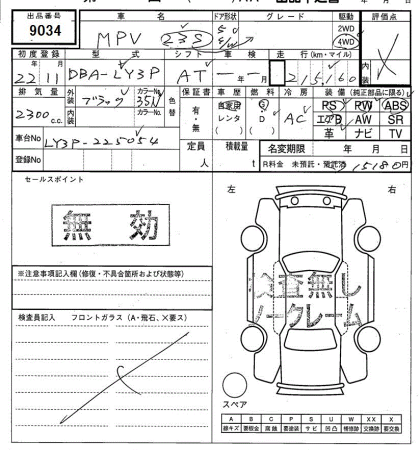 出品番号 車名 ドア形状 グレード 駆動 評価点
9034 MPV 23S 2WD 4WD
初度登録 型式 シフト 車検 走行(km・マイル) 内装
22年 11月 DBA-LY3P AT 年 月 215,160
排気量 外装 ブラック カラーNo 35N 色替 保証書 車歴 燃料 冷房 装備(純正部品に限る)
2300 c.c. 内装 カラーNo 有・無 自家用 レンタ ( ) G D ( ) AC RS PW ABS
エアB AW SR
革 ナビ TV
車台No LY3P-225054 定員 人 積載量 t 名変期限 年 月 日
登録No R料金 未預託・預託済 15180円
セールスポイント 左 右
無効
検査無し
ノークレーム
※注意事項記入欄(修復・不具合箇所および状態等)
検査員記入 フロントガラス(A・飛石、×要ス)
スペア
A B C P S U W X XX
線キズ 要板金 腐蝕 要塗装 サビ 凹凸 補修跡 交換跡 要交換